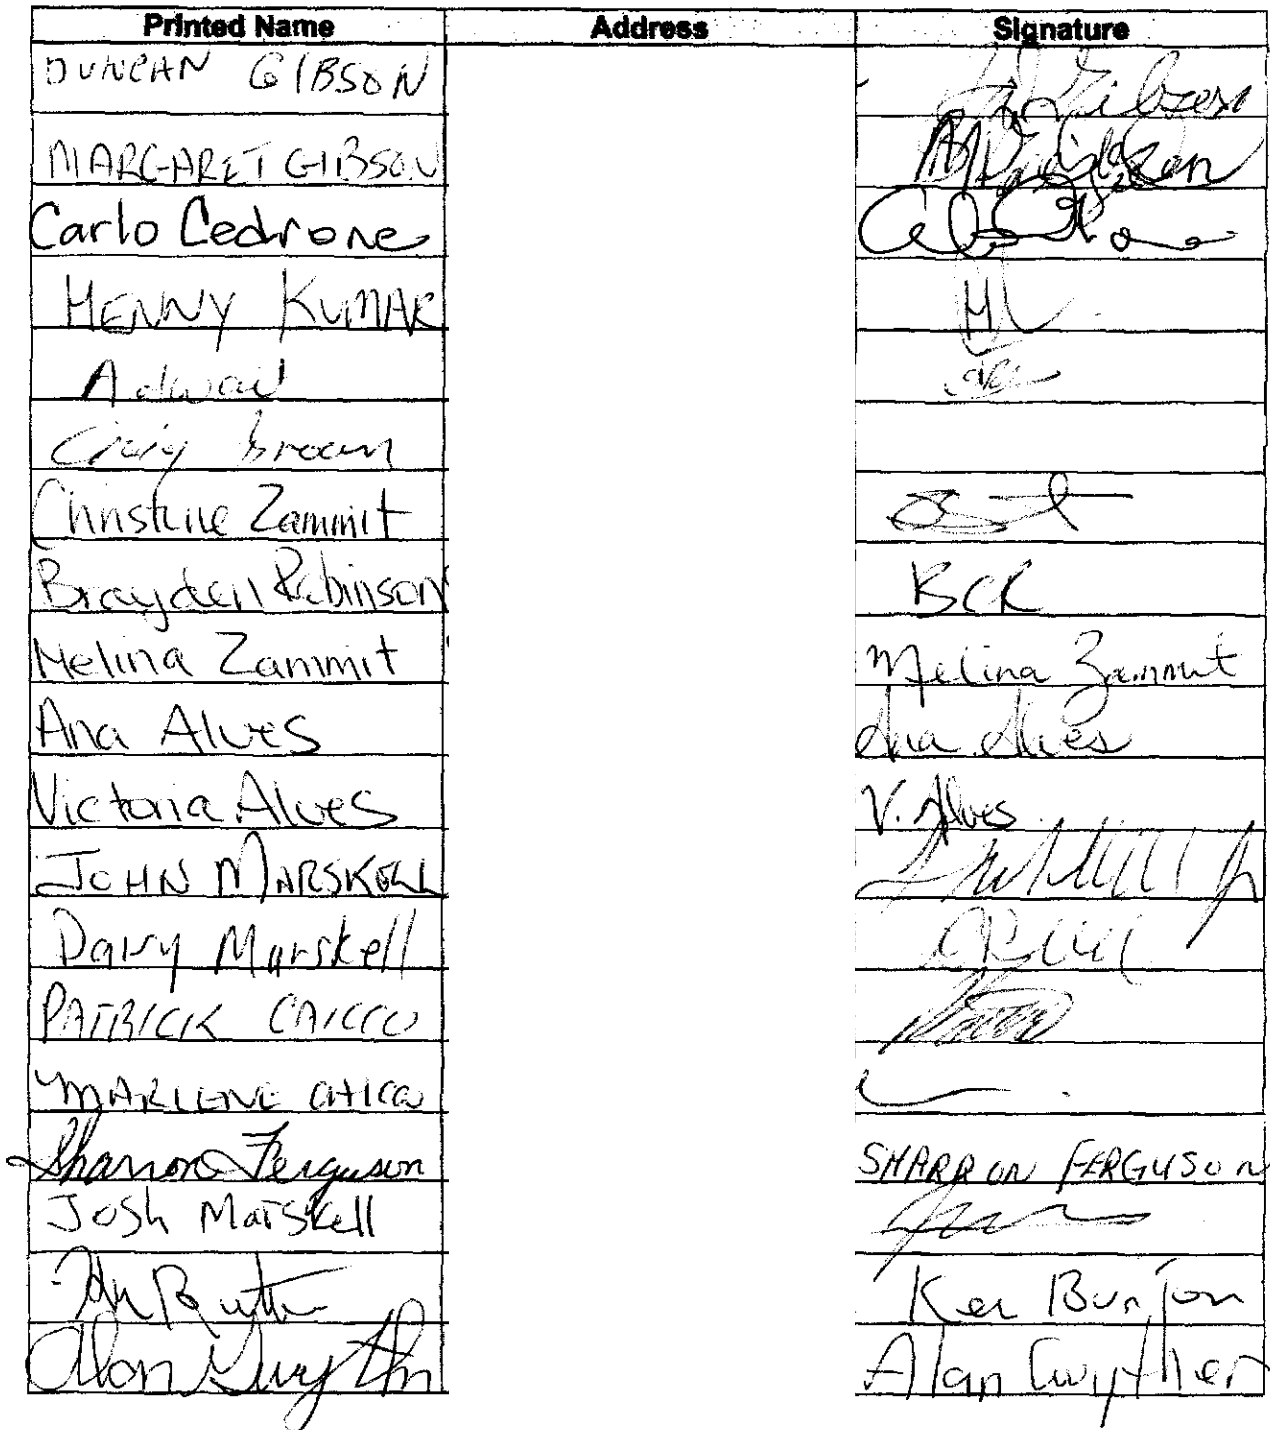 Printed Name Address Signature
DUNCAN GIBSON Gibson
MARGARET GIBSON
Carlo Cedrone
HENNY KUMAR
Craig Brown
Christine Zammit
Brayden Robinson BCR
Melina Zammit Melina Zammit
Ana Alves Ana Alves
Victoria Alves V. Alves
JOHN MARSKELL
Marskell
PATRICK CAICCO
MARLENE
Sharron Ferguson SHARRON FERGUSON
Josh Marskell
Ken Burton
Alan Gwyther